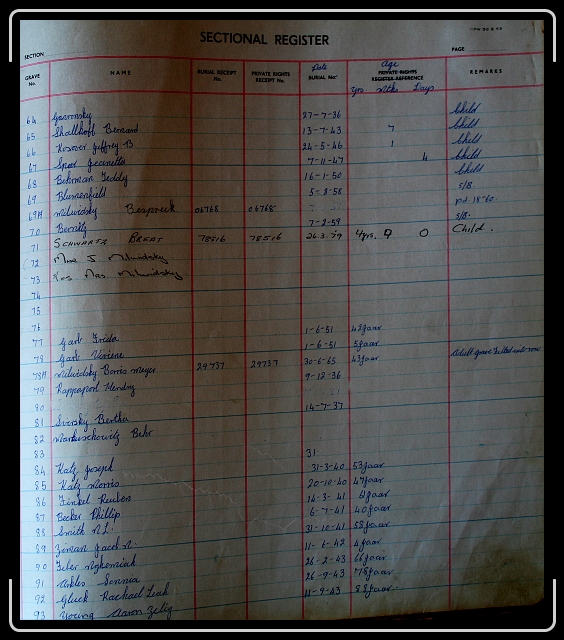 SECTIONAL REGISTER
SECTION PAGE
GRAVE No. NAME BURIAL RECEIPT No. PRIVATE RIGHTS RECEIPT No. Date BURIAL No. Age PRIVATE RIGHTS REGISTER REFERENCE REMARKS
yrs Mths Days
64 27-7-36 Child
65 Shallkoff Bernard 13-7-43 7 Child
66 Kosover Jeffrey B 24-5-46 1 Child
67 Speer Jeanette 7-11-47 4 Child
68 Behrman Teddy 16-1-50 Child
69 Blumenfeld 5-8-58 S/B
69A Milwidsky 06768 06768
70 7-2-59 S/B.
71 SCHWARTZ BREAT 78516 78516 26.3.79 4yrs. 9 0 Child.
72 Milwidsky
73 Mrs. Milwidsky
74
75
76
77 Garb Frida 1-6-51 43jaar
78 Garb Viviene 1-6-51 5jaar
78A Milwidsky Borris Meyer 29737 29737 30-6-65 43jaar
79 Rappaport Hendry 9-12-36
80
81 Svirsky Bertha 14-7-37
82 Markuschowitz Behr
83
84 Katz Joseph 31-3-40 53jaar
85 Katz Morris 20-10-40 47jaar
86 Finkel Reuben 14-3-41
87 Becker Phillip 6-7-41 40jaar
88 Smith N.L. 31-10-41 58jaar
89 Ziman Jacob N. 11-6-42
90 Feler Nechemiah 26-2-43 66jaar
91 Ankles Sonnia 26-9-43 78jaar
92 Gluck Rachael Leah 11-9-43
93 Young Aaron Zelig